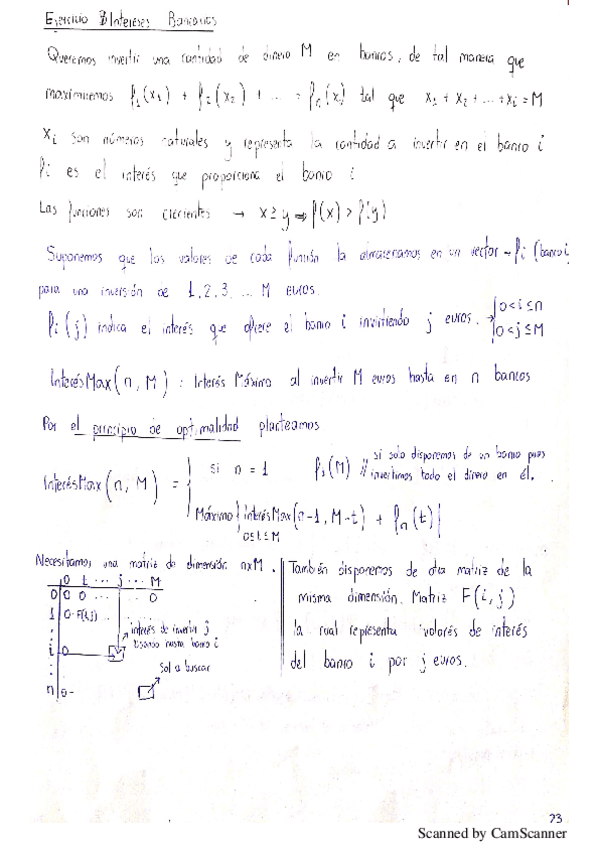 Ejercicio 3 Intereses Bancarios
Queremos invertir una cantidad de dinero M en bancos, de tal manera que
maximicemos f₁(x₁) + f₂(x₂) + ... + fₙ(xᵢ) tal que x₁ + x₂ + ... + xᵢ = M
Xᵢ son números naturales y representa la cantidad a invertir en el banco i
fᵢ es el interés que proporciona el banco i
Las funciones son crecientes → x ≥ y ⇒ f(x) > f(y)
Suponemos que los valores de cada función la almacenamos en un vector → fᵢ (banco i
para una inversión de 1, 2, 3, ... M euros.
fᵢ(j) indica el interés que ofrece el banco i invirtiendo j euros. → {0<i≤n
0<j≤M
InterésMax(n, M) : Interés Máximo al invertir M euros hasta en n bancos
Por el principio de optimalidad planteamos
si n = 1 f₁(M) // si solo disponemos de un banco pues
invertimos todo el dinero en él.
InterésMax(n, M) = {
Máximo { interésMax(n-1, M-t) + fₙ(t) }
0≤t≤M
Necesitamos una matriz de dimensión nxM.
0 1 ... j ... M
0 0 0 ... 0
1 0 F(i,j) ...
interés de invertir j
usando hasta banco i
i 0
Sol a buscar
n 0-
También disponemos de otra matriz de la
misma dimensión. Matriz F(i,j)
la cual representa valores de interés
del banco i por j euros.
23
Scanned by CamScanner